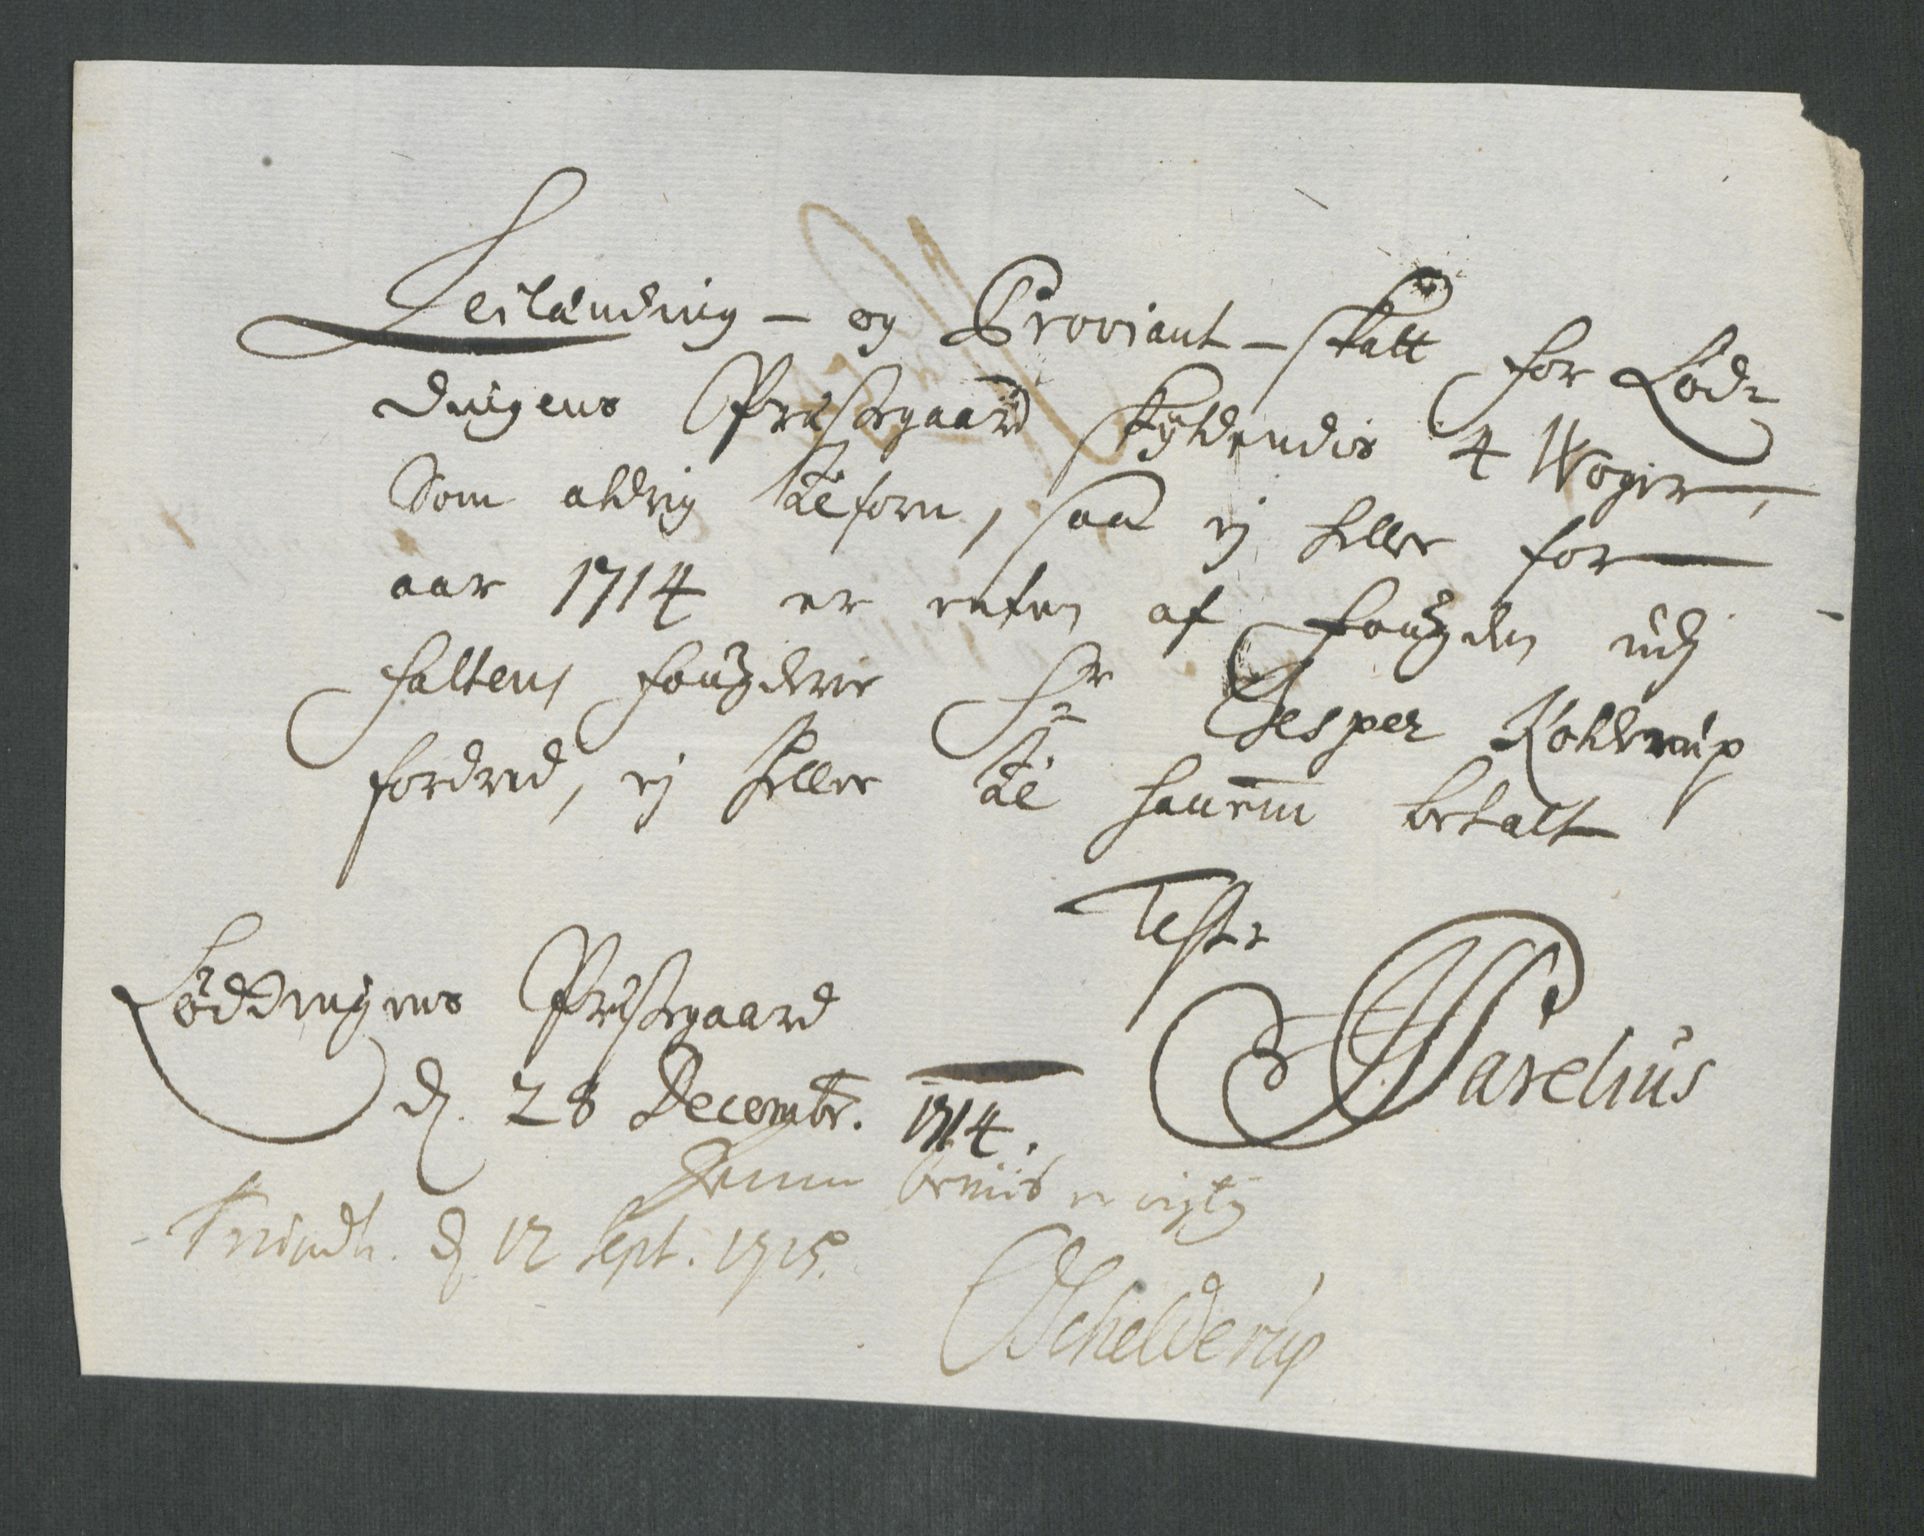 Leilænding- og Proviant-skatt for Lød-
dingens Præstegaard skyldendis 4 Woger,
Som aldrig tilforn, saa ej heller for
aar 1714 er enten af fougden udj
Saltens fougderie Sr Jesper Kolderup
fordred, ej heller til hannem betalt
Teste
Løddingens Præstegaard
d. 28 Decembr. 1714.
HWarelius
Denne beviis er rigtig
Trundh. d. 12 Sept. 1715.
Schelderup